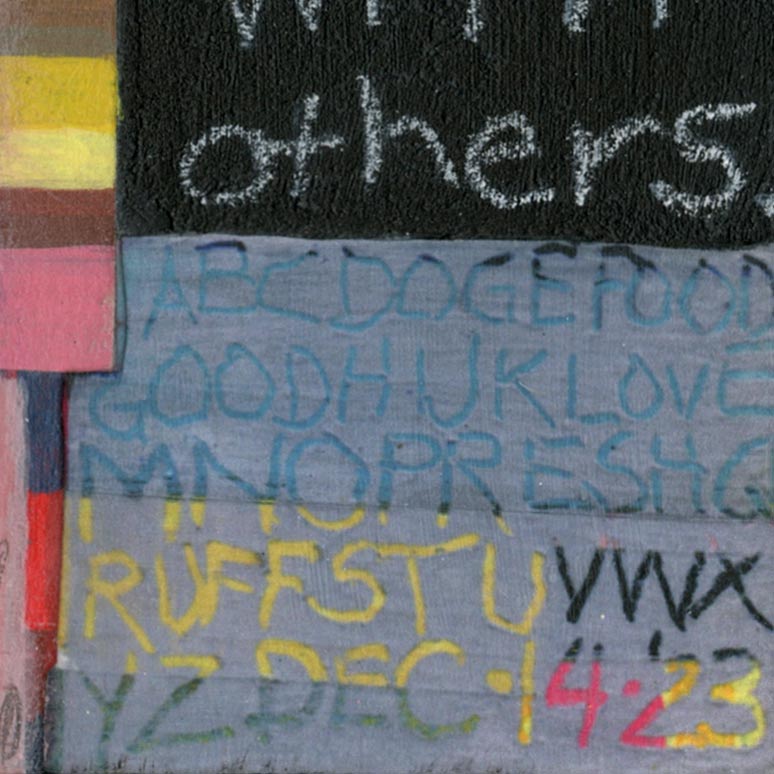 others.
ABCDOGEFOOD
GOODHIJKLOVE
MNOPRESHQ
RUFFSTUVWX
YZ DEC·14·23